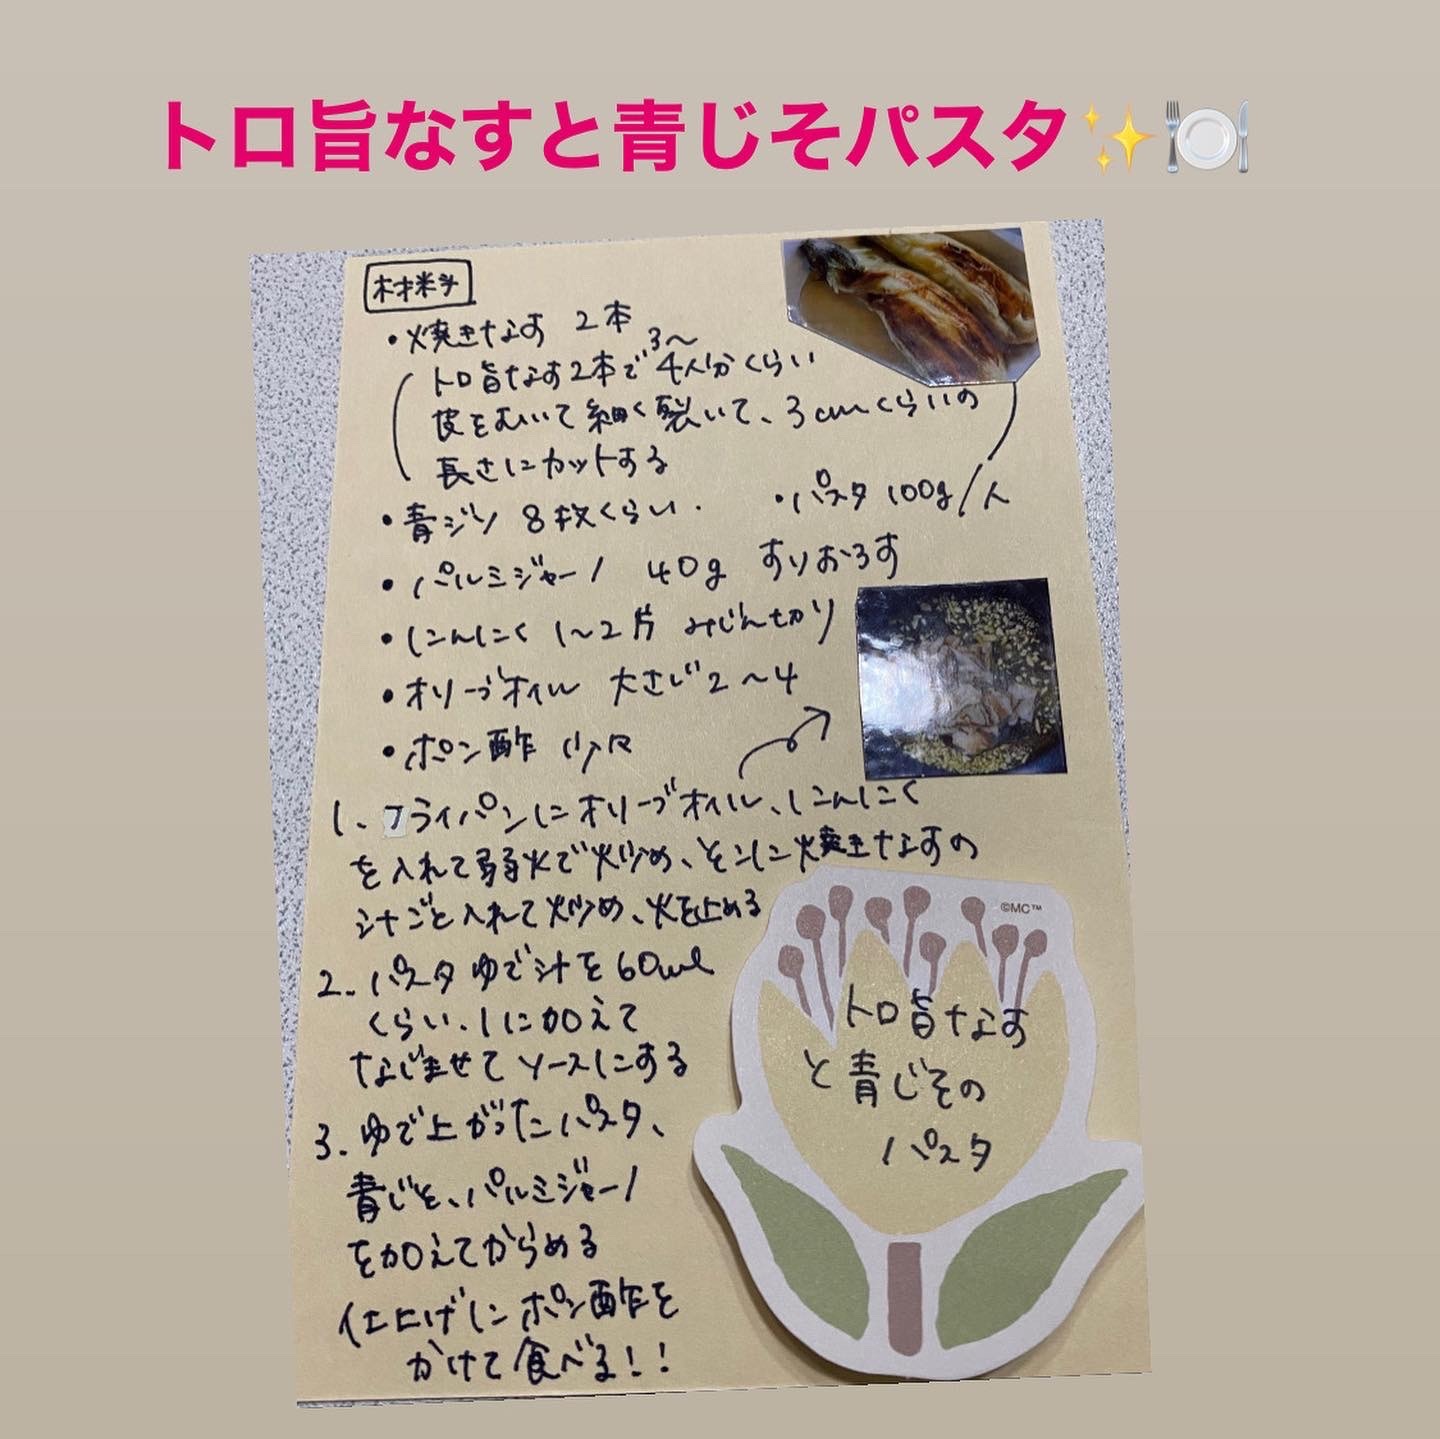 トロ旨なすと青じそパスタ✨🍽️
材料
・焼きなす 2本
トロ旨なす2本で3〜4人分くらい
皮をむいて細く裂いて、3cmくらいの
長さにカットする
・青ジソ 8枚くらい.
・パスタ 100g/人
・パルミジャーノ 40g すりおろす
・にんにく 1〜2片 みじん切り
・オリーブオイル 大さじ2〜4
・ポン酢 少々
1. フライパンにオリーブオイル、にんにく
を入れて弱火で炒め、そこに焼きなすの
汁ごと入れて炒め、火を止める
2. パスタゆで汁を60ml
くらい、1に加えて
なじませてソースにする
3. ゆで上がったパスタ、
青じそ、パルミジャーノ
を加えてからめる
仕上げにポン酢を
かけて食べる!!
©MC™
トロ旨なす
と青じその
パスタ